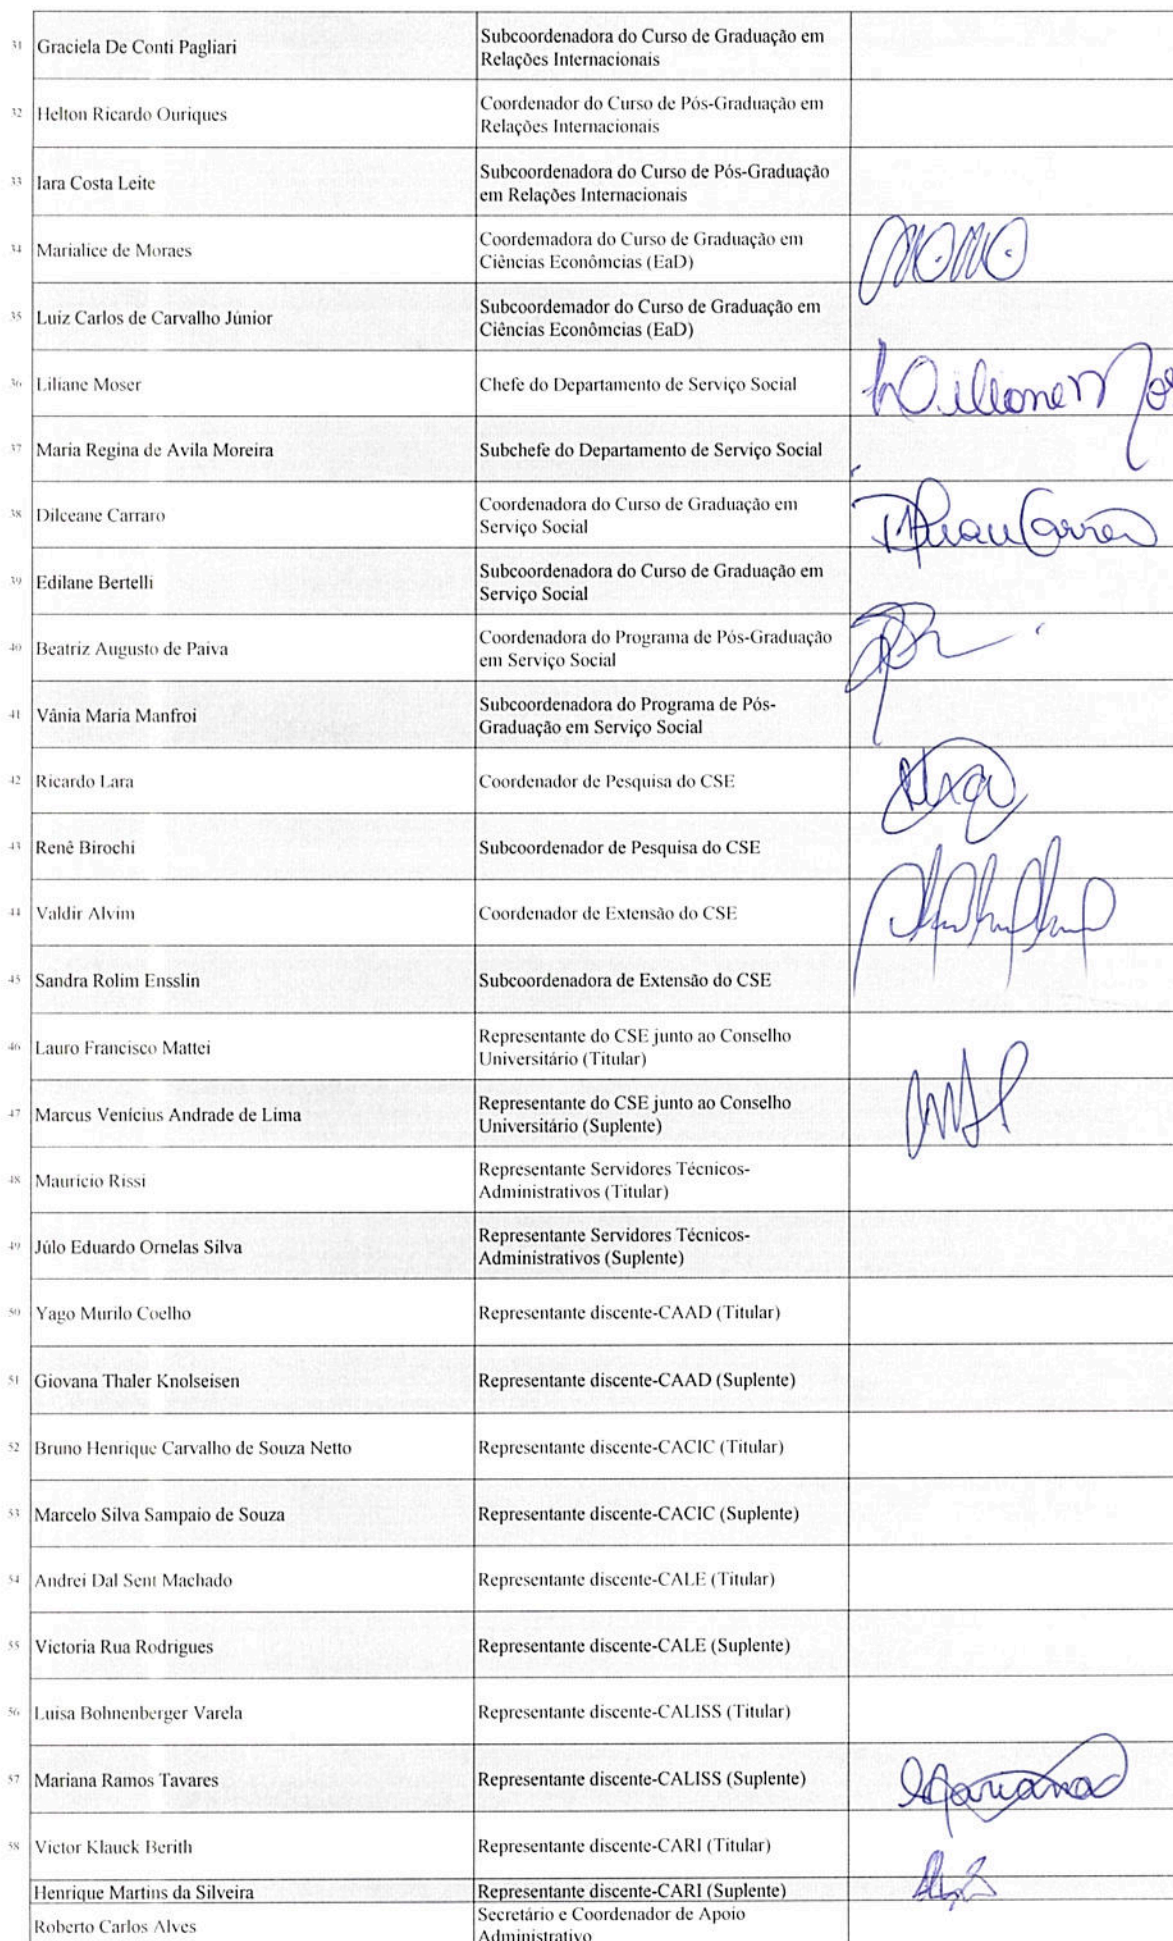 31 Graciela De Conti Pagliari Subcoordenadora do Curso de Graduação em
Relações Internacionais
32 Helton Ricardo Ouriques Coordenador do Curso de Pós-Graduação em
Relações Internacionais
33 Iara Costa Leite Subcoordenadora do Curso de Pós-Graduação
em Relações Internacionais
34 Marialice de Moraes Coordemadora do Curso de Graduação em
Ciências Econômcias (EaD)
35 Luiz Carlos de Carvalho Júnior Subcoordemador do Curso de Graduação em
Ciências Econômcias (EaD)
36 Liliane Moser Chefe do Departamento de Serviço Social
37 Maria Regina de Avila Moreira Subchefe do Departamento de Serviço Social
38 Dilceane Carraro Coordenadora do Curso de Graduação em
Serviço Social
39 Edilane Bertelli Subcoordenadora do Curso de Graduação em
Serviço Social
40 Beatriz Augusto de Paiva Coordenadora do Programa de Pós-Graduação
em Serviço Social
41 Vânia Maria Manfroi Subcoordenadora do Programa de Pós-
Graduação em Serviço Social
42 Ricardo Lara Coordenador de Pesquisa do CSE
43 Renê Birochi Subcoordenador de Pesquisa do CSE
44 Valdir Alvim Coordenador de Extensão do CSE
45 Sandra Rolim Ensslin Subcoordenadora de Extensão do CSE
46 Lauro Francisco Mattei Representante do CSE junto ao Conselho
Universitário (Titular)
47 Marcus Venícius Andrade de Lima Representante do CSE junto ao Conselho
Universitário (Suplente)
48 Maurício Rissi Representante Servidores Técnicos-
Administrativos (Titular)
49 Júlo Eduardo Ornelas Silva Representante Servidores Técnicos-
Administrativos (Suplente)
50 Yago Murilo Coelho Representante discente-CAAD (Titular)
51 Giovana Thaler Knolseisen Representante discente-CAAD (Suplente)
52 Bruno Henrique Carvalho de Souza Netto Representante discente-CACIC (Titular)
53 Marcelo Silva Sampaio de Souza Representante discente-CACIC (Suplente)
54 Andrei Dal Sent Machado Representante discente-CALE (Titular)
55 Victoria Rua Rodrigues Representante discente-CALE (Suplente)
56 Luisa Bohnenberger Varela Representante discente-CALISS (Titular)
57 Mariana Ramos Tavares Representante discente-CALISS (Suplente) Mariana
58 Victor Klauck Berith Representante discente-CARI (Titular)
Henrique Martins da Silveira Representante discente-CARI (Suplente)
Roberto Carlos Alves Secretário e Coordenador de Apoio
Administrativo